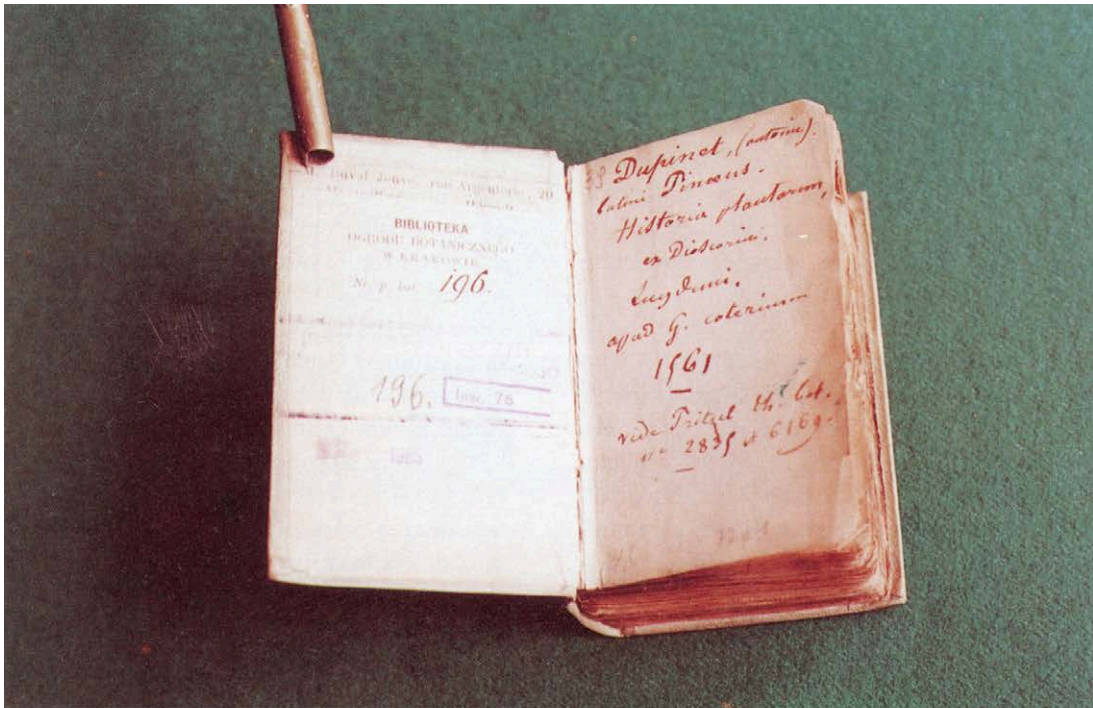 M. Duval Jouve, rue Argenterie, 20
BIBLIOTEKA
OGRODU BOTANICZNEGO
W KRAKOWIE
Nr. p. 196.
196. Inw. 76
Dupinet, (antoine).
latini Pinæus.
Historia plantarum,
ex Dioscorid.
Lugduni,
apud G. coterium
1561
vide Pritzel th. bot.
n° 2835 et 6169.